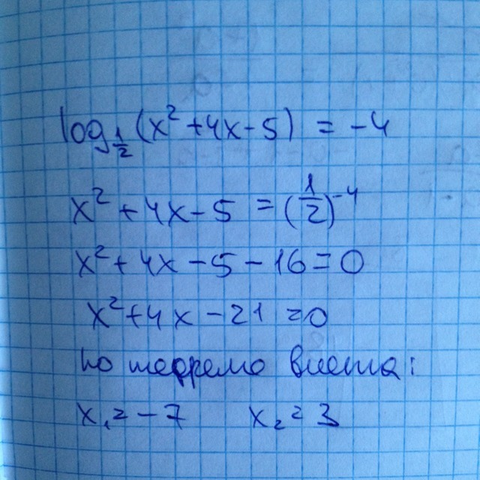 log_{1/2}(x² + 4x - 5) = -4
x² + 4x - 5 = (1/2)^{-4}
x² + 4x - 5 - 16 = 0
x² + 4x - 21 = 0
по теореме виета:
x₁ = -7 x₂ = 3